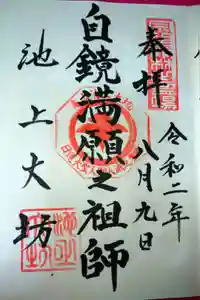 奉拝
令和二年
八月九日
自鏡満願之祖師
池上大坊